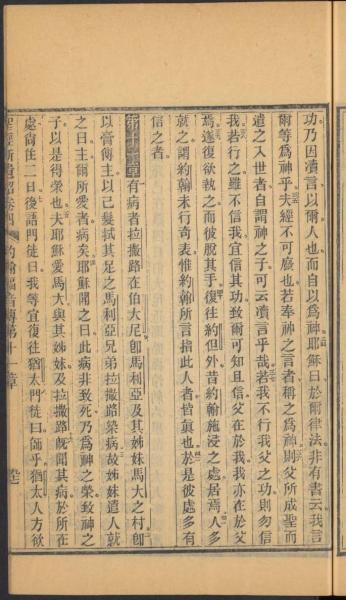 功乃因凟言以爾人也而自以為神耶穌曰於爾律法非有書云我言
爾等為神乎夫經不可廢也若奉神之言者稱之為神則父所成聖而
遣之入世者自謂神之子可云凟言乎哉若我不行我父之功則勿信
我若行之雖不信我宜信其功致爾可知且信父在於我我亦在於父
焉遂復欲執之而彼脫其手復往約但外昔約翰施浸之處居焉人多
就之謂約翰未行奇表惟約翰所言指此人者皆眞也於是彼處多有
信之者
第十一章有病者拉撒路在伯大尼卽馬利亞及其姊妹馬大之村卽
以膏傅主以己髮拭其足之馬利亞兄弟拉撒路染病故姊妹遣人就
之曰主爾所愛者病矣耶穌聞之曰此病非致死乃為神之榮致神之
子以是得榮也夫耶穌愛馬大與其姊妹及拉撒路旣聞其病於所在
處尙住二日後語門徒曰我等宜復往猶太門徒曰師乎猶太人方欲
聖經新遺詔卷四 約翰福音傳第十一章